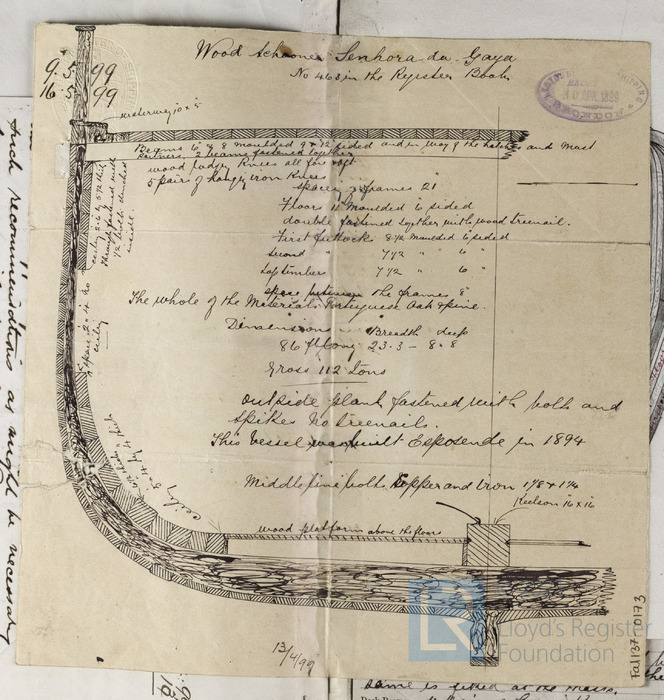 Wood Schooner Senhora da Guya
No 463 in the Register Book
9.5.99
16.5.99
waterway 10 x 5
Beams 6 & 8 moulded 9 & 12 sided and in way of the hatches and mast
partners 2 beams fastened together
wood lodging Knees all fore & aft
5 pairs of hanging iron Knees
spaces frames 21
Floors 11 Moulded 6 sided
double fastened together with wood treenail.
First futtocks 8 1/2 Moulded 6 sided
Second " 7 1/2 " 6 "
Top timbers 7 1/2 " 6 "
space between the frames 8"
The whole of the Materials Portuguese Oak & pine.
Dimensions Breadth deep
86 ft long 23.3 - 8.8
Gross 112 Tons
outside plank fastened with bolts and
spikes No treenails.
This Vessel was built Esposende in 1894
Middle line bolts Copper and iron 1 1/8 & 1 1/4
Keelson 16 x 16
wood platform above the floors
ceiling
13/4/99
Such recommendations as might be necessary
Fal137.0173
LR
Lloyd's Register
Foundation
same is fitted at the